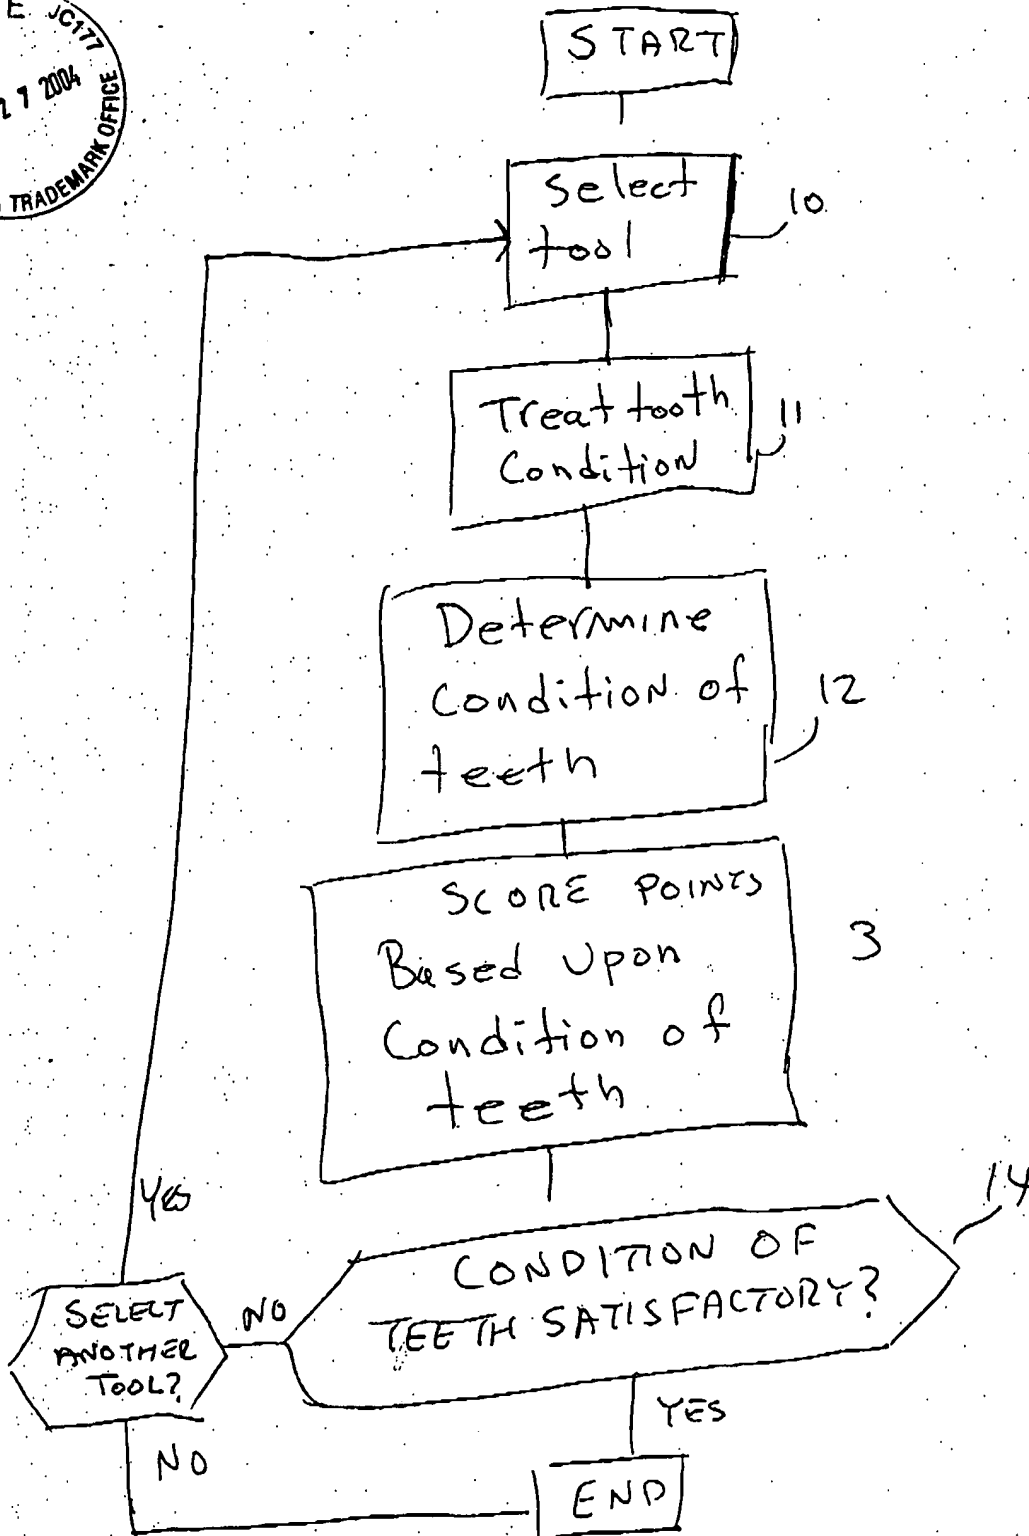 E JC177
27 2004
TRADEMARK OFFICE
START
Select
tool
10
Treat tooth
Condition
11
Determine
Condition of
teeth
12
SCORE POINTS
Based Upon
Condition of
teeth
3
YES
CONDITION OF
TEETH SATISFACTORY?
14
NO
SELECT
ANOTHER
TOOL?
YES
NO
END